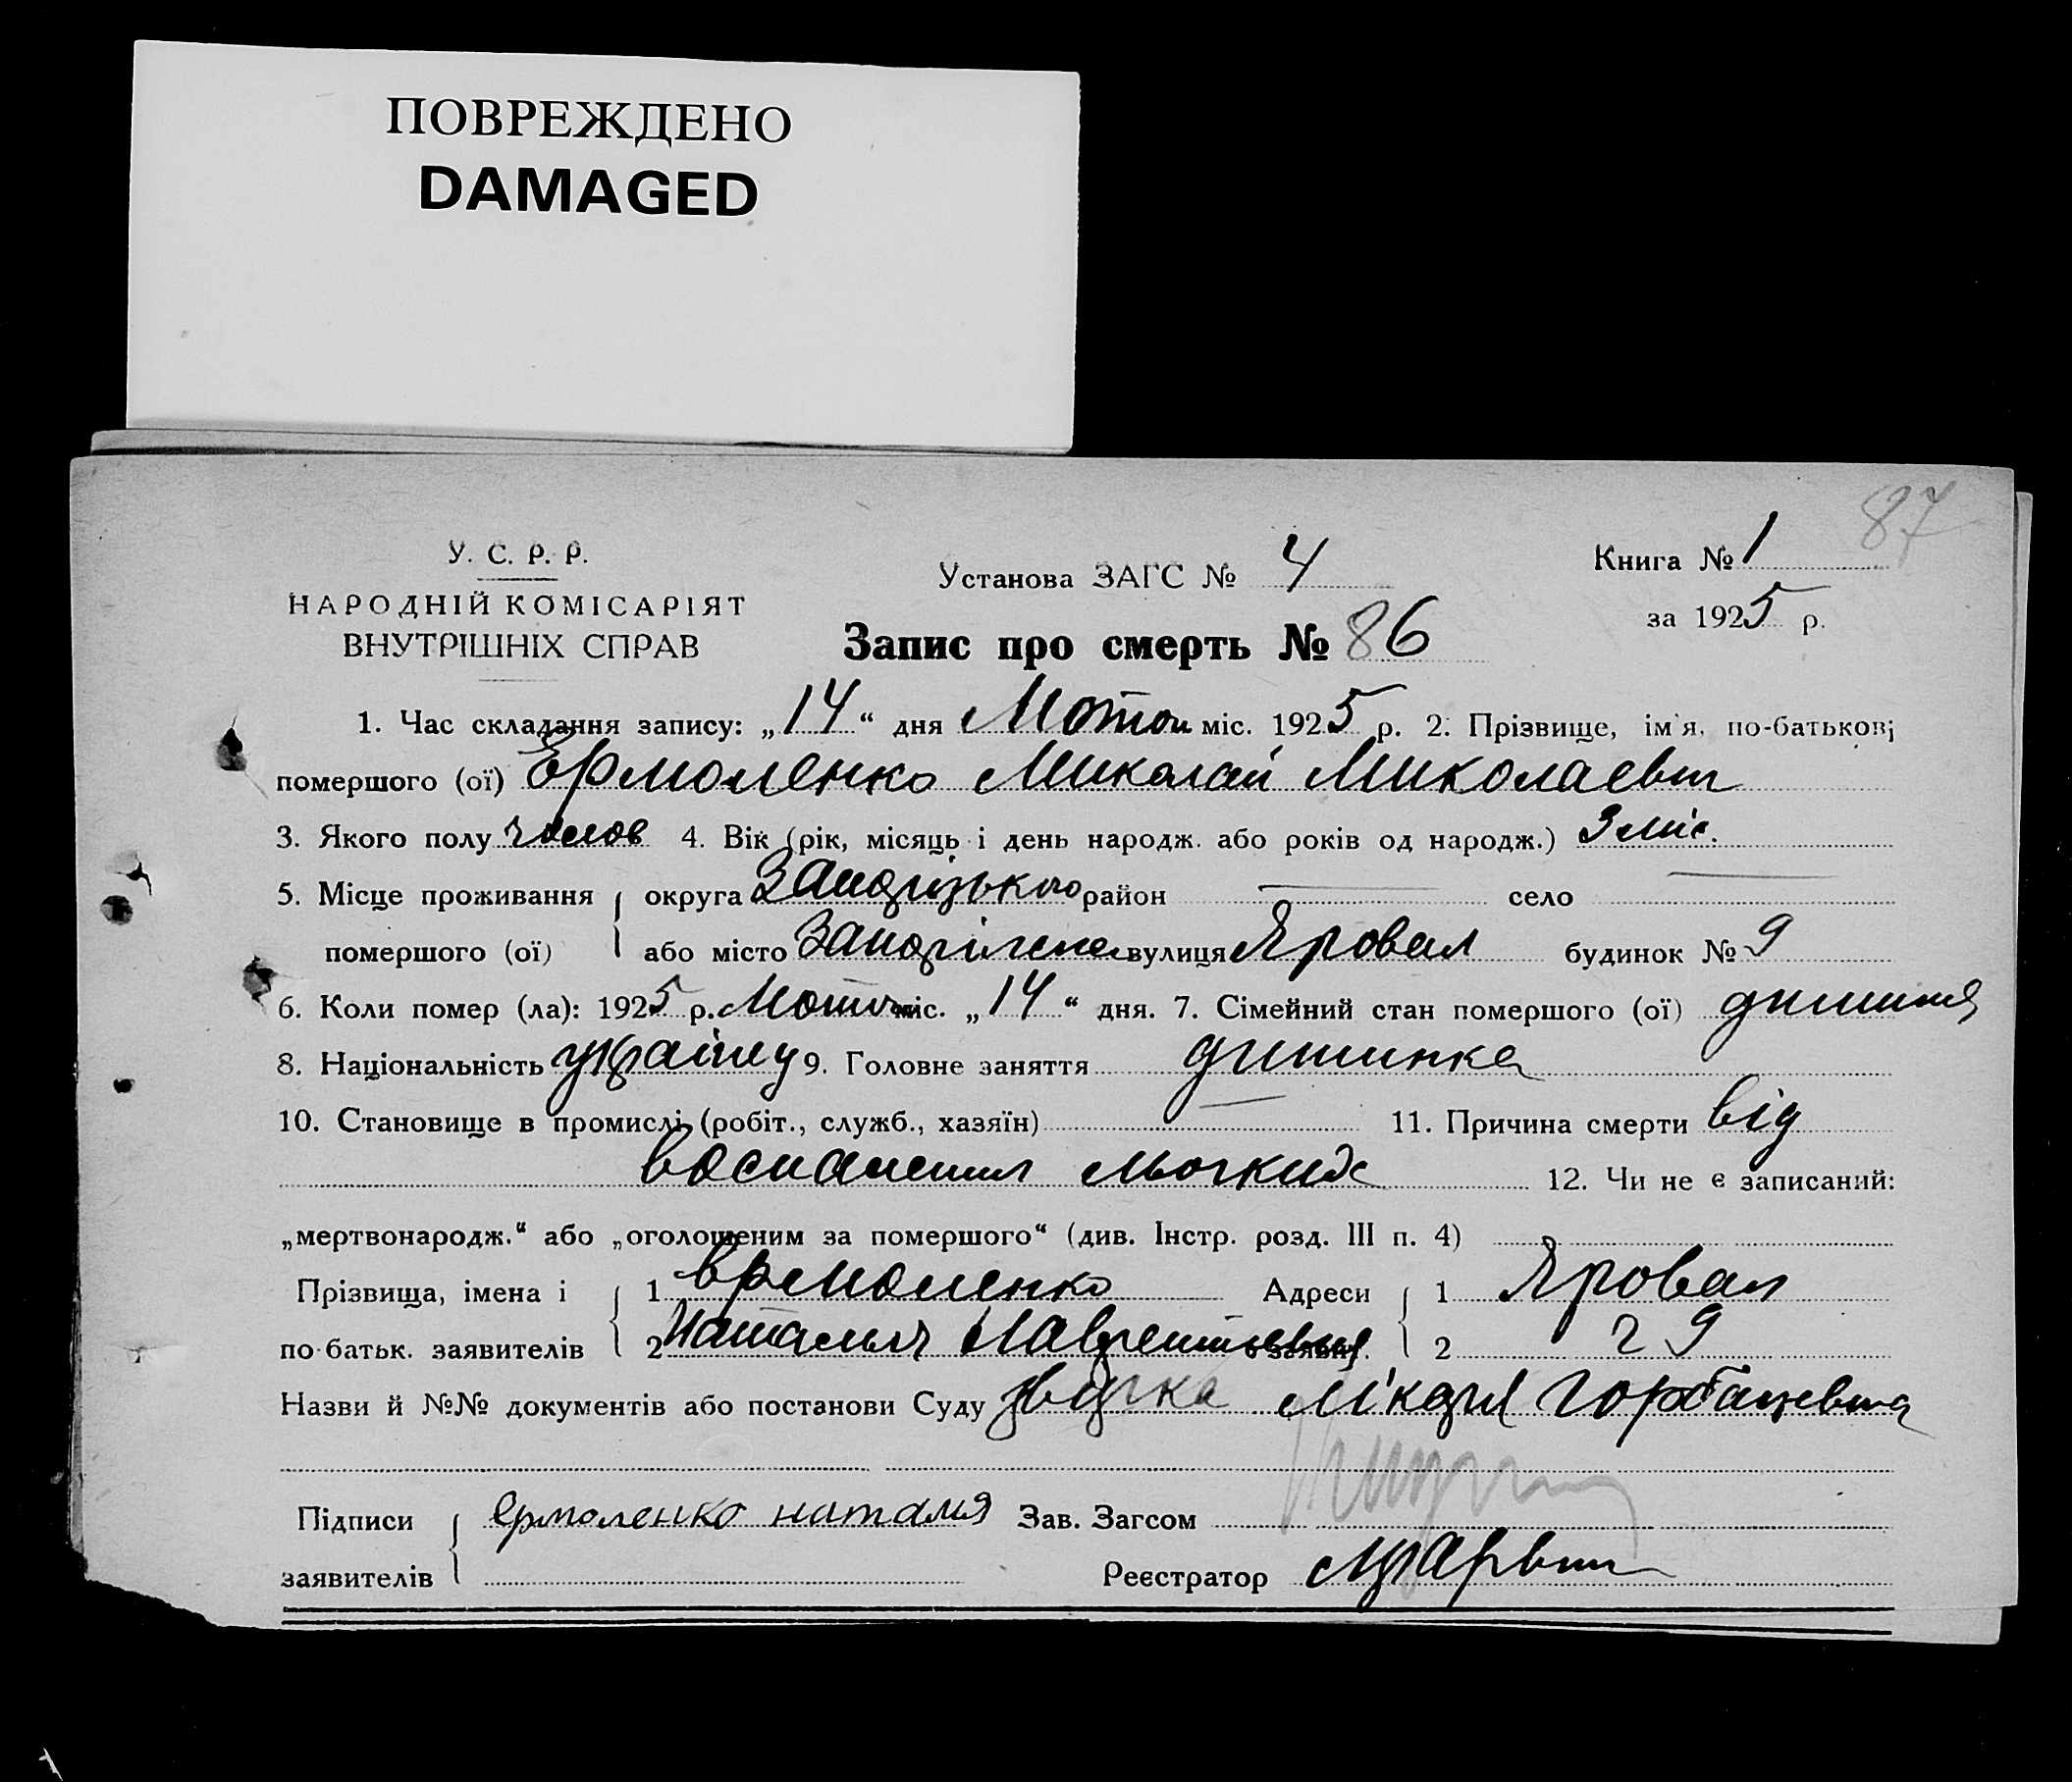 ПОВРЕЖДЕНО
DAMAGED
87
У. С. Р. Р.
НАРОДНІЙ КОМІСАРІЯТ
ВНУТРІШНІХ СПРАВ
Установа ЗАГС № 4
Книга № 1
за 1925 р.
Запис про смерть № 86
1. Час складання запису: „14“ дня Лютого міс. 1925 р. 2. Прізвище, ім'я, по-батькові
помершого (ої) Єрмоленко Миколай Миколаевич
3. Якого полу чолов 4. Вік (рік, місяць і день народж. або років од народж.) 3 міс.
5. Місце проживання округа район село
помершого (ої) або місто вулиця Яровая будинок № 9
6. Коли помер (ла): 1925 р. Лютого міс. „14“ дня. 7. Сімейний стан помершого (ої) дитина
8. Національність 9. Головне заняття дитинка
10. Становище в промислі (робіт., служб., хазяїн) 11. Причина смерти від
воспаления льогких 12. Чи не є записаний:
„мертвонародж.“ або „оголошеним за помершого“ (див. Інстр. розд. III п. 4)
Прізвища, імена і 1 Єрмоленко Адреси 1 Яровая
по-батьк. заявителів 2 Наталия Лаврентьевна заявит. 2 9
Назви й №№ документів або постанови Суду лікаря
Підписи Ермоленко наталия Зав. Загсом
заявителів Реєстратор